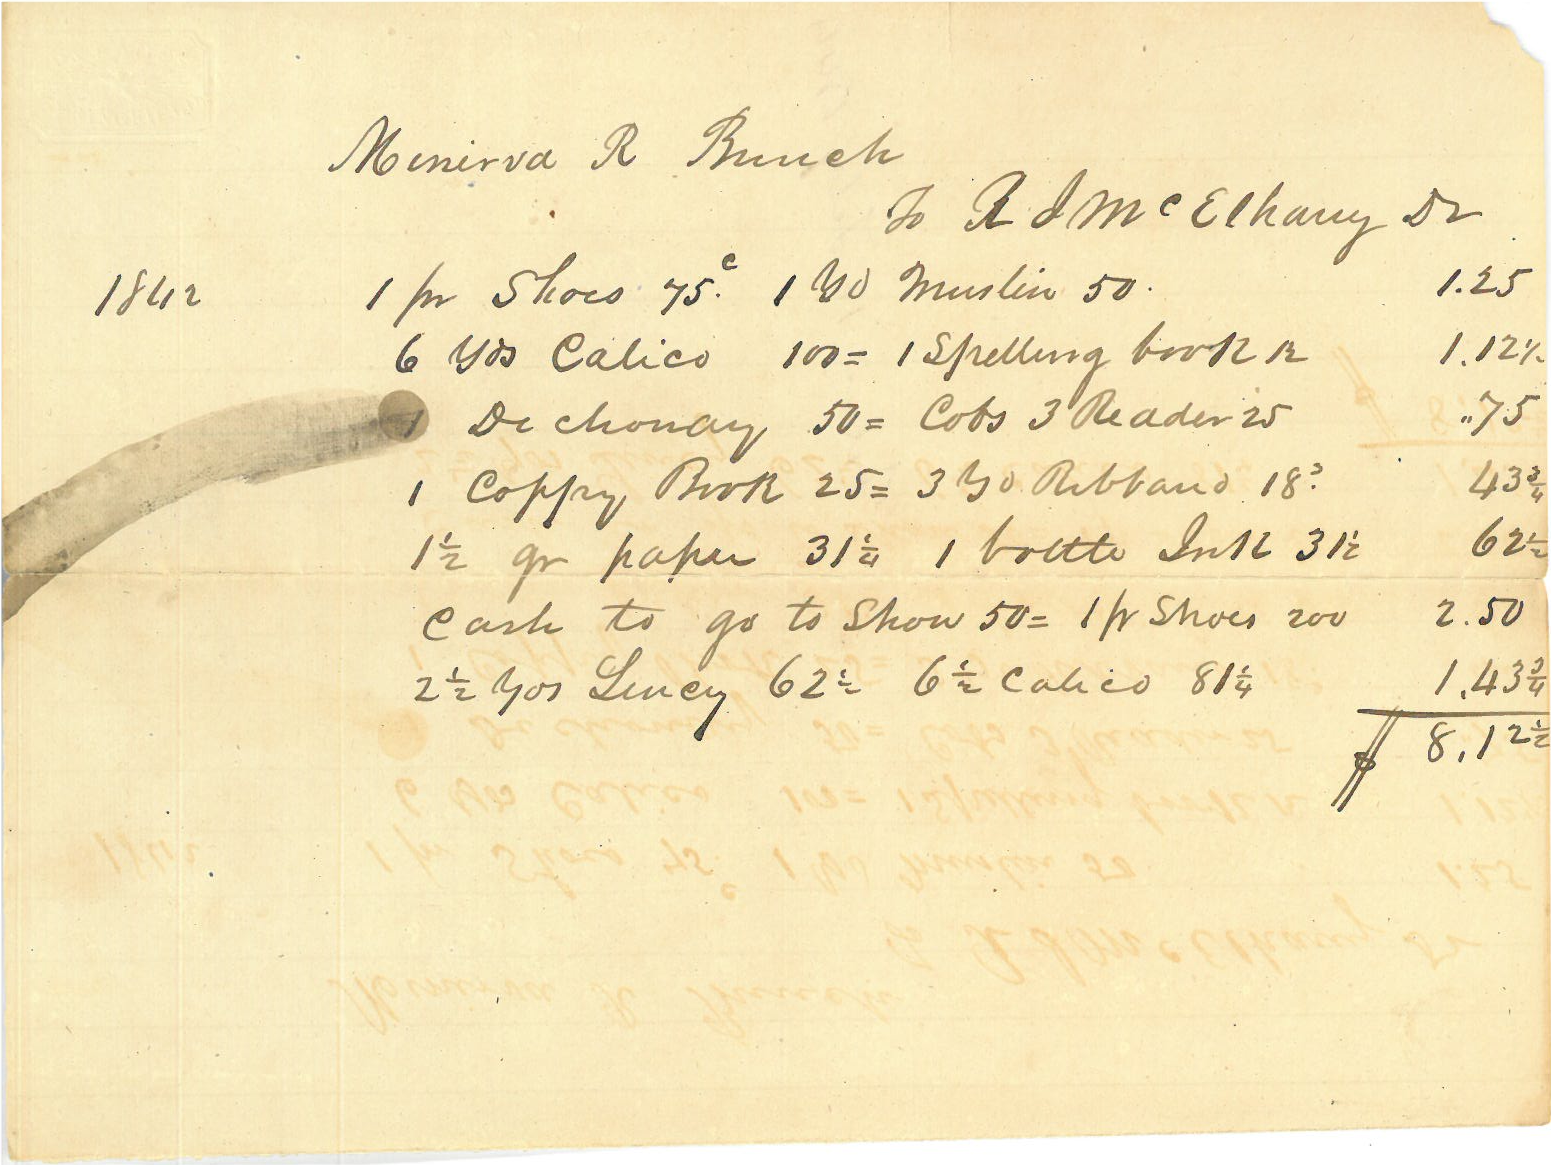 Minerva R Bunch
To R I McElhany Dr
1842 1 pr Shoes 75.c 1 Yd Muslin 50. 1.25
6 Yds Calico 100= 1 Spelling book 12 1.12½
1 Dictionary 50= Cobs 3 Reader 25 ..75
1 Coppy Book 25= 3 Yd Ribband 18.3 43¾
1½ qr paper 31¼ 1 bottle Ink 31½ 62½
Cash to go to Show 50= 1 pr Shoes 200 2.50
2½ Yds Lincy 62½ 6½ Calico 81¼ 1.43¾
$ 8.12½